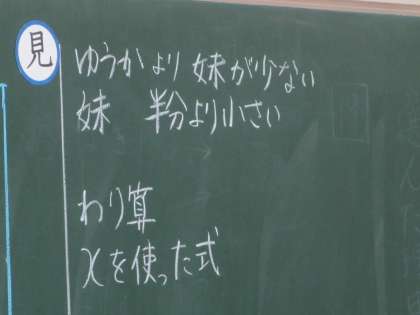 見
ゆうかより妹が少ない
妹 半分より小さい
わり算
xを使った式